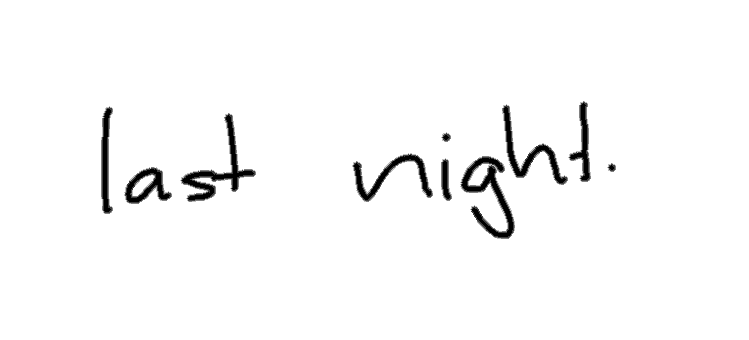 last night.